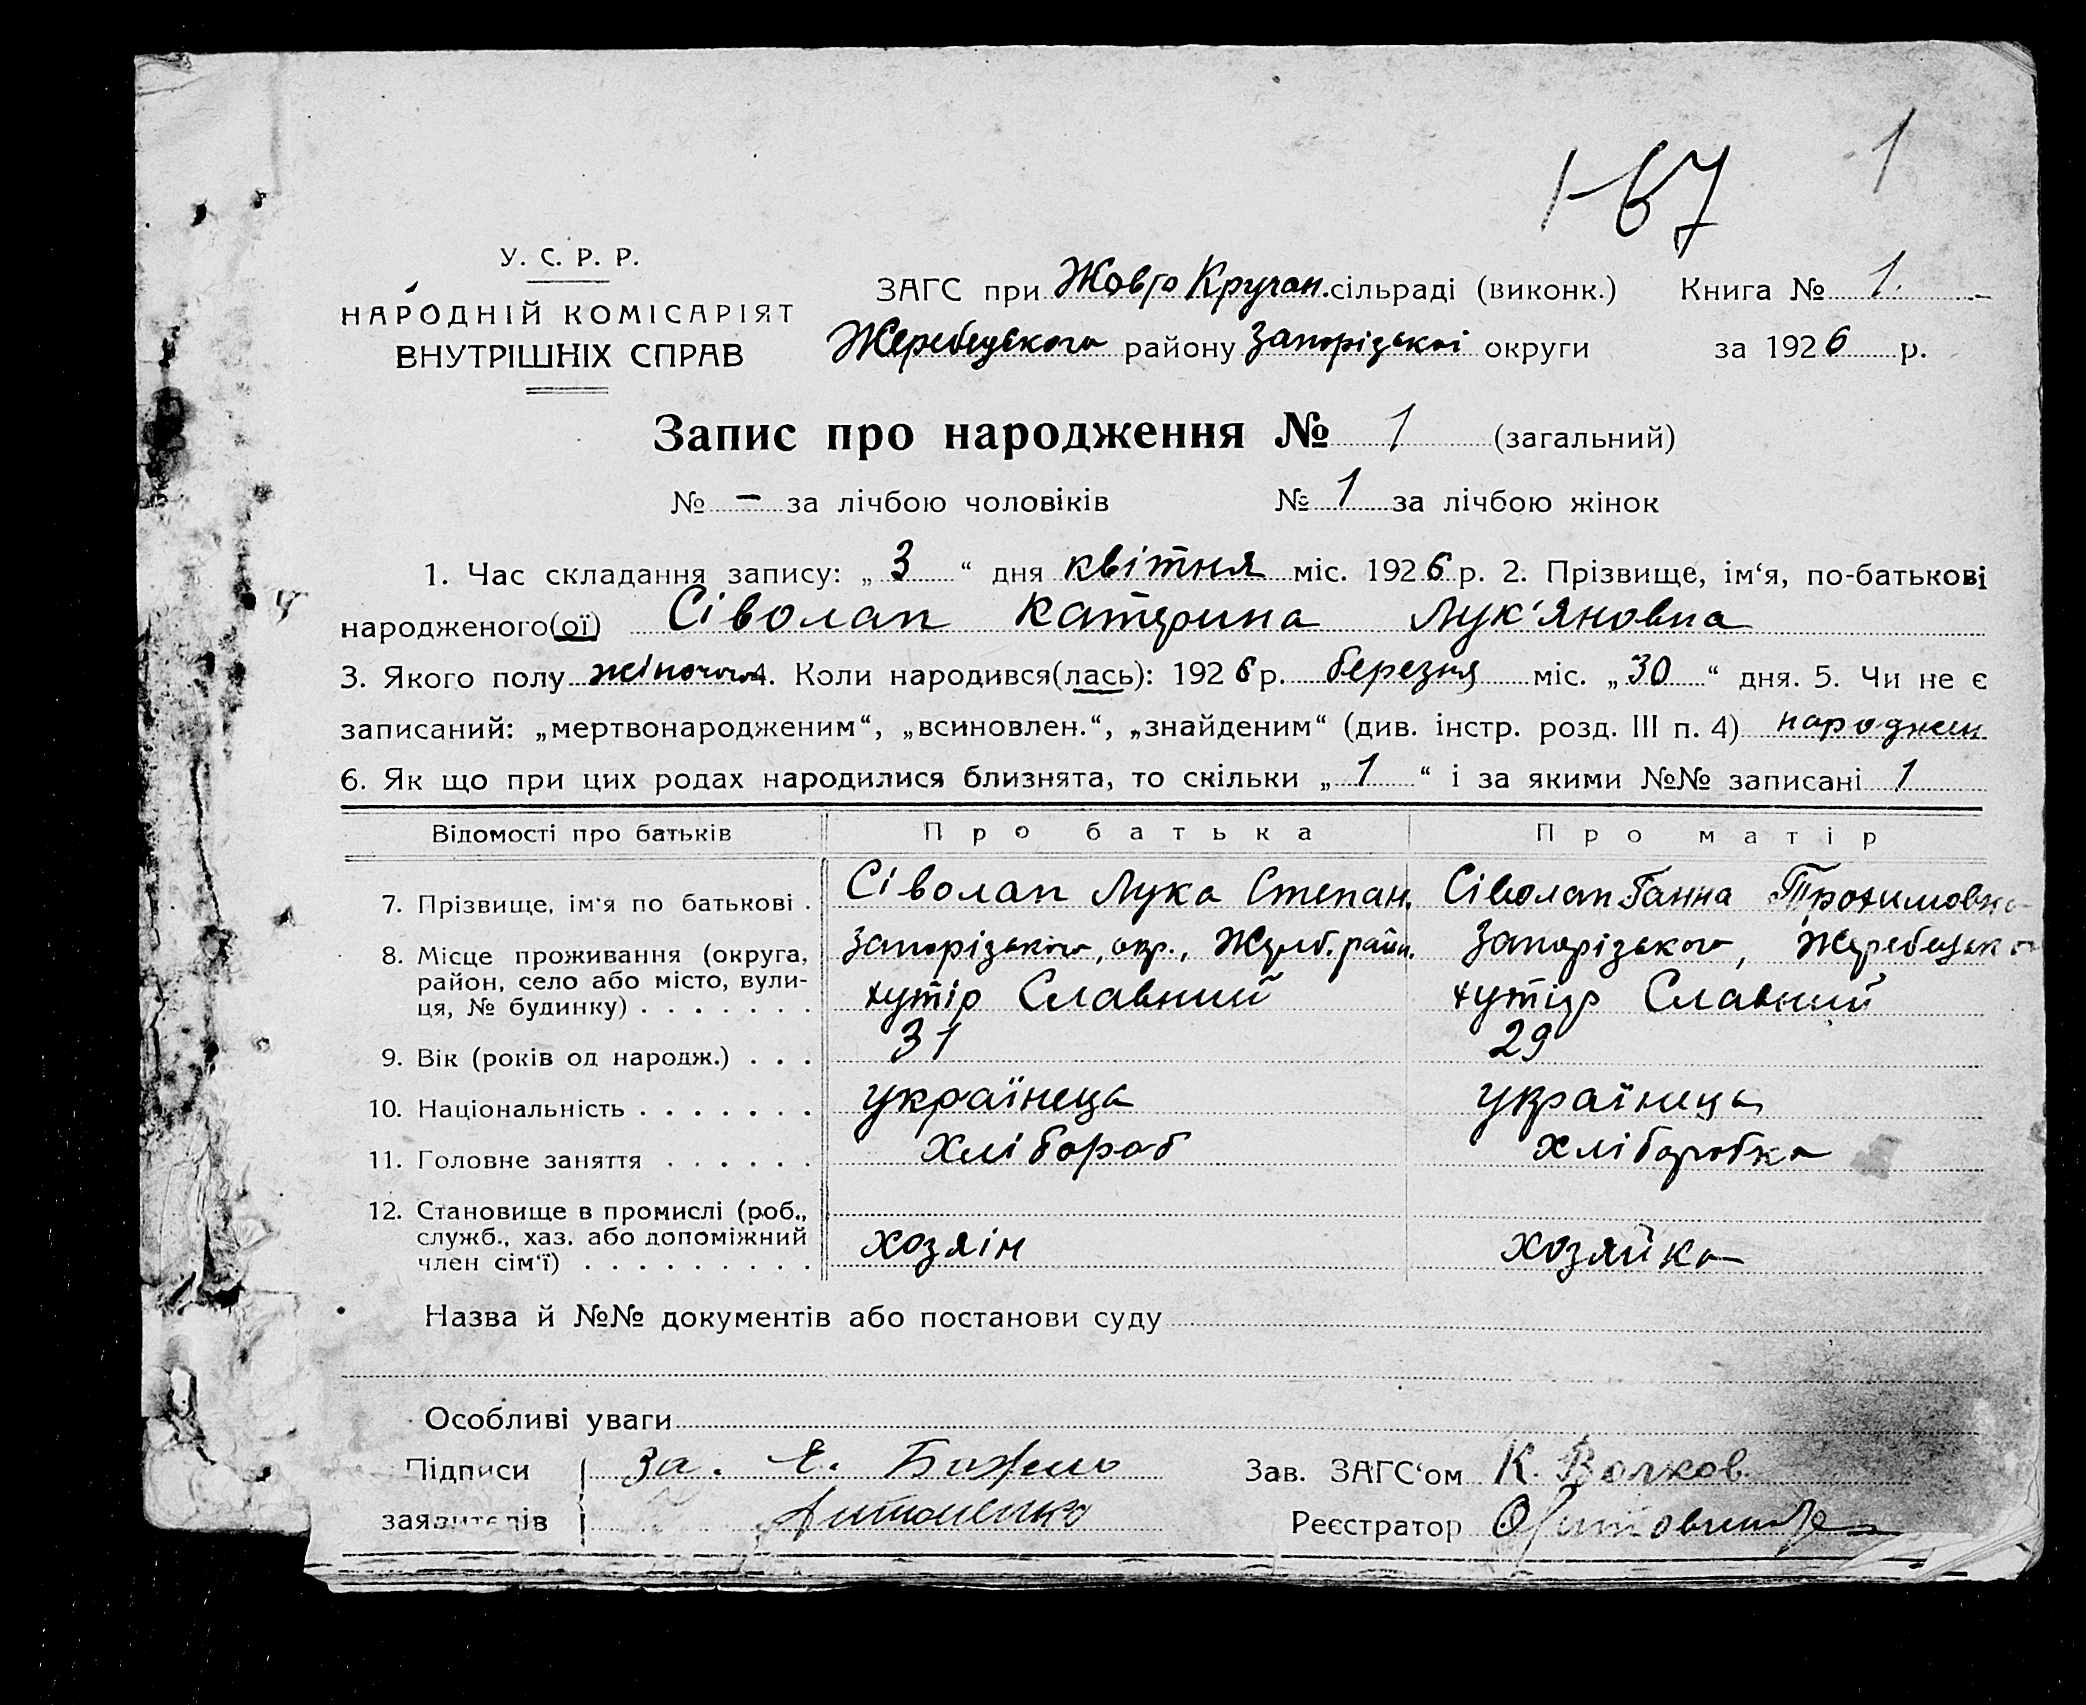 1-67 1
У. С. Р. Р.
НАРОДНІЙ КОМІСАРІЯТ
ВНУТРІШНІХ СПРАВ
ЗАГС при Жовто Кручан. сільраді (виконк.) Книга № 1.
Жеребецького району Запорізькоі округи за 1926 р.
Запис про народження № 1 (загальний)
№ – за лічбою чоловіків № 1 за лічбою жінок
1. Час складання запису: „ 3 “ дня квітня міс. 1926 р. 2. Прізвище, ім‘я, по-батькові
народженого(ої) Сіволап Катерина Лук'яновна
3. Якого полу жіночого 4. Коли народився(лась): 1926 р. березня міс. „ 30 “ дня. 5. Чи не є
записаний: „мертвонародженим“, „всиновлен.“, „знайденим“ (див. інстр. розд. III п. 4) народжен
6. Як що при цих родах народилися близнята, то скільки „ 1 “ і за якими №№ записані 1
Відомості про батьків Про батька Про матір
7. Прізвище, ім‘я по батькові . Сіволап Лука Степан. Сіволап Ганна Трохимовна
8. Місце проживання (округа, Запорізького, окр., Жереб. район. Запорізького, Жеребецько
район, село або місто, вули-
ця, № будинку) . . . . . . . хутір Славний хутір Славний
9. Вік (років од народж.) . . . 31 29
10. Національність . . . . . . . українець українец
11. Головне заняття . . . . . . Хлібороб хліборобка
12. Становище в промислі (роб.,
служб., хаз. або допоміжний
член сім‘ї) . . . . . . . . . хозяін хозяйка
Назва й №№ документів або постанови суду
Особливі уваги
Підписи За. Є. Зав. ЗАГС‘ом К. Волков.
заявителів Антоненко Реєстратор